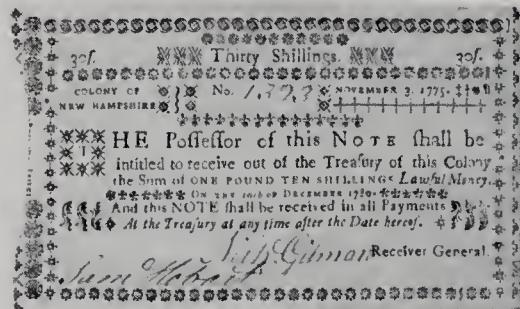 30ſ. Thirty Shillings. 30ſ.
COLONY OF NEW HAMPSHIRE No. 1323 NOVEMBER 3. 1775.
THE Poſſeſſor of this NOTE ſhall be
intitled to receive out of the Treaſury of this Colony
the Sum of ONE POUND TEN SHILLINGS Lawful Money.
ON THE DECEMBER 1780
And this NOTE ſhall be received in all Payments
At the Treaſury at any time after the Date hereof.
Gilman Receiver General.
Sam Hobart